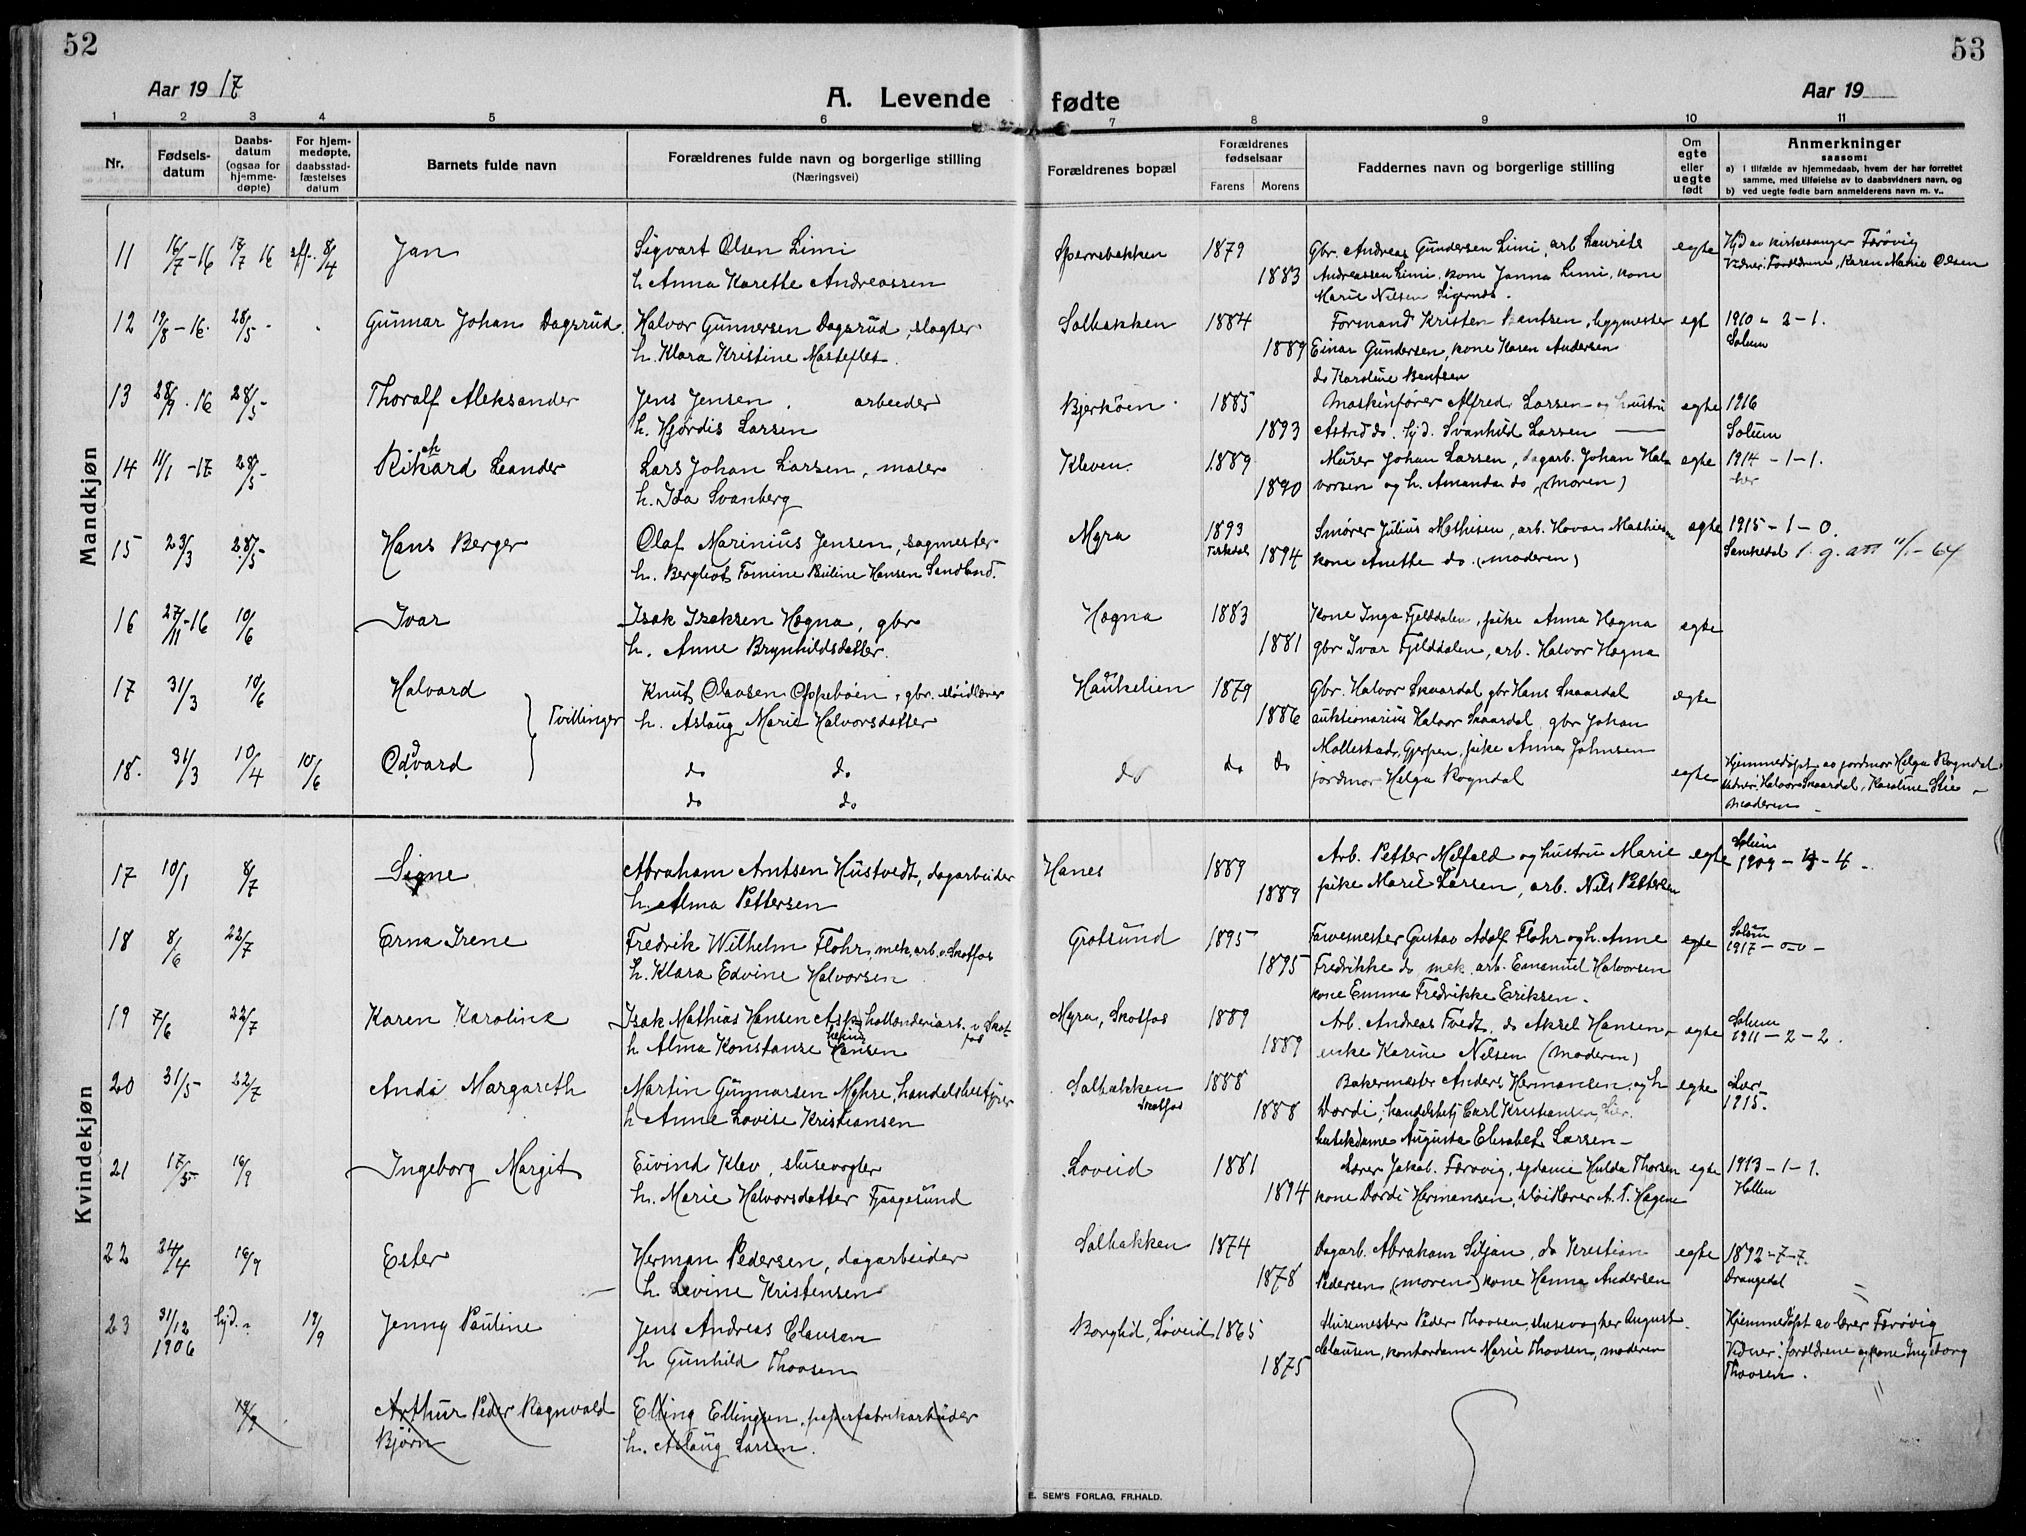 52
53
Aar 19 17
A. Levende fødte
Aar 19
1 2 3 4 5 6 7 8 9 10 11
Nr.
Fødsels-
datum
Daabs-
datum
(ogsaa for
hjemme-
døpte)
For hjem-
medøpte,
daabsstad-
fæstelses
datum
Barnets fulde navn
Forældrenes fulde navn og borgerlige stilling
(Næringsvei)
Forældrenes bopæl
Forældrenes
fødselsaar
Farens Morens
Faddernes navn og borgerlige stilling
Om
egte
eller
uegte
født
Anmerkninger
saasom:
a) I tilfælde av hjemmedaab, hvem der har forrettet
samme, med tilføielse av to daabsvidners navn, og
b) ved uegte fødte barn anmelderens navn m. v..
Mandkjøn
11 16/7-16 17/7 16 8/4 Jan Sigvart Olsen Limi Sperrebakken 1879 Gbr. Andreas Gundersen Limi, arb Laurits egte Hjd av kirkesanger Førøvig
h Anna Karethe Andreassen 1883 Andreassen Limi, kone Janna Limi, kone Vidner: Forældrene, Karen Marie Olsen
Marie Nilsen
12 19/8-16 28/5 - Gunnar Johan Dagsrud Halvor Gunnersen Dagsrud, slagter Solbakken 1884 Formand Kristen Bentsen, bygmester egt 1910 - 2 - 1.
h. Klara Kristine 1889 Einar Gundersen, kone Karen Andersen Solum
do Karoline Bentsen
13 28/9-16 28/5 - Thoralf Aleksander Jens Jensen, arbeider Bjerkøen 1885 Maskinfører Alfred Larsen og hustru egte 1916
h. Hjørdis Larsen 1893 Astrid do. Svanhild Larsen Solum
14 11/1-17 28/5 - Rikard Leander Lars Johan Larsen, maler Kleven 1889 Murer Johan Larsen, dagarb. Johan Hal- egte 1914 - 1 - 1.
h. Ida Svanberg 1890 vorsen og h. Amanda do, (moren) her
15 23/3 28/5 - Hans Berger Olaf Marinius Jensen, sagmester Myra 1893 Smører Julius Mathisen, arb. Hovar Mathisen egte 1915 - 1 - 0.
h. Bergliot Tomine Pauline Hansen Sandland. 1894 kone Anette do. (moderen)
16 27/11-16 10/6 Ivar Isak Isaksen Høgna, gbr Høgna 1883 Kone Inga Fjelddalen, pike Anna Høgna egte
h. Anne Brynhildsdatter 1881 gbr Ivar Fjelddalen, arb. Halvor Høgna
17 31/3 10/6 Halvard Knut Olausen gbr. sløidlærer Haukelien 1879 Gbr. Halvor Skaardal gbr Hans Skaardal egte
Tvillinger h. Aslaug Marie Halvorsdatter 1886 auktionarius Halvor Skaardal, gbr Johan
Mollestad, Gjerpen, pike Anna Johnsen
18. 31/3 10/4 10/6 Oddvard do do do do do jordmor Helga Rogndal egte Hjemmedøpt av jordmor Helga Rogndal
do do Vidner: Halvor Skaardal, Karoline Stie
Moderen -
Kvindekjøn
17 10/1 8/7 Signe Abraham Arntsen Hustvedt, dagarbeider Hanes 1889 Arb. Petter Melfald og hustru Marie egte Solum 1909 - 4 - 4 -
h. Alma Pettersen 1889 pike Marie Larsen, arb. Nils Pettersen
18 8/6 22/7 Erna Irene Fredrik Wilhelm Flohr, mek. arb. v. Skotfos Grotsund 1895 Farvemester Gustav Adolf Flohr og h. Anne egte Solum 1917 - 0-0 -
h. Klara Edvine Halvorsen 1895 Fredrikke do mek. arb. Emanuel Halvorsen
kone Emma Fredrikke Eriksen.
19 7/6 22/7 Karen Karoline Isak Mathias Hansen Ask, hollenderiarb. v Skot- Myra, Skotfos 1889 Arb. Andreas Tvedt, do Aksel Hansen, egte Solum 1911 - 2 - 2.
h Alma Konstanse Hansen fos 1889 enke Karine Nilsen (moderen)
20 31/5 22/7 Anda Margareth Martin Gunnarsen Myhre, handelsbestyrer Solbakken 1888 Bakermester Anders Hermansen og h egte
Skotfos 1915.
h Anne Lovise Kristiansen 1888 Dordi, handelsbetj Carl Kristiansen, Lier.
butikdame Augusta Elisabet Larsen -
21 17/5 16/9 Ingeborg Margit Eivind Klev, slusevogter Løveid 1881 Lærer Jakob Førøvig, sydame Hulda Thorsen egte 1913 - 1 - 1.
h. Marie Halvorsdatter Fjaagesund 1894 kone Dordi Hermansen, sløidlærer A. T. Hagene Hollen
22 24/4 16/9 Ester Herman Pedersen, dagarbeider Solbakken 1874 Dagarb. Abraham Siljan, do Kristian egte 1892 - 7 - 7.
h Levine Kristensen 1878 Pedersen (moren) kone Hanna Andersen Drangedal
23 31/12 1906 hjd. 19/9 Jenny Pauline Jens Andreas Clausen Borglid, Løveid 1865 Slusemester Peder Thovsen, slusevogter August Hjemmedøpt av lærer Førøvig
h Gunhild Thovsen 1875 Clausen, kontordame Marie Thovsen, moderen Vidner: forældrene og kone Ingeborg
Thovsen.
19/9 Arthur Peder Ragnvald Elling Ellingsen, papirfabrikarbeider
Bjørn h. Aslaug Larsen.
E. SEM'S FORLAG, FR.HALD.